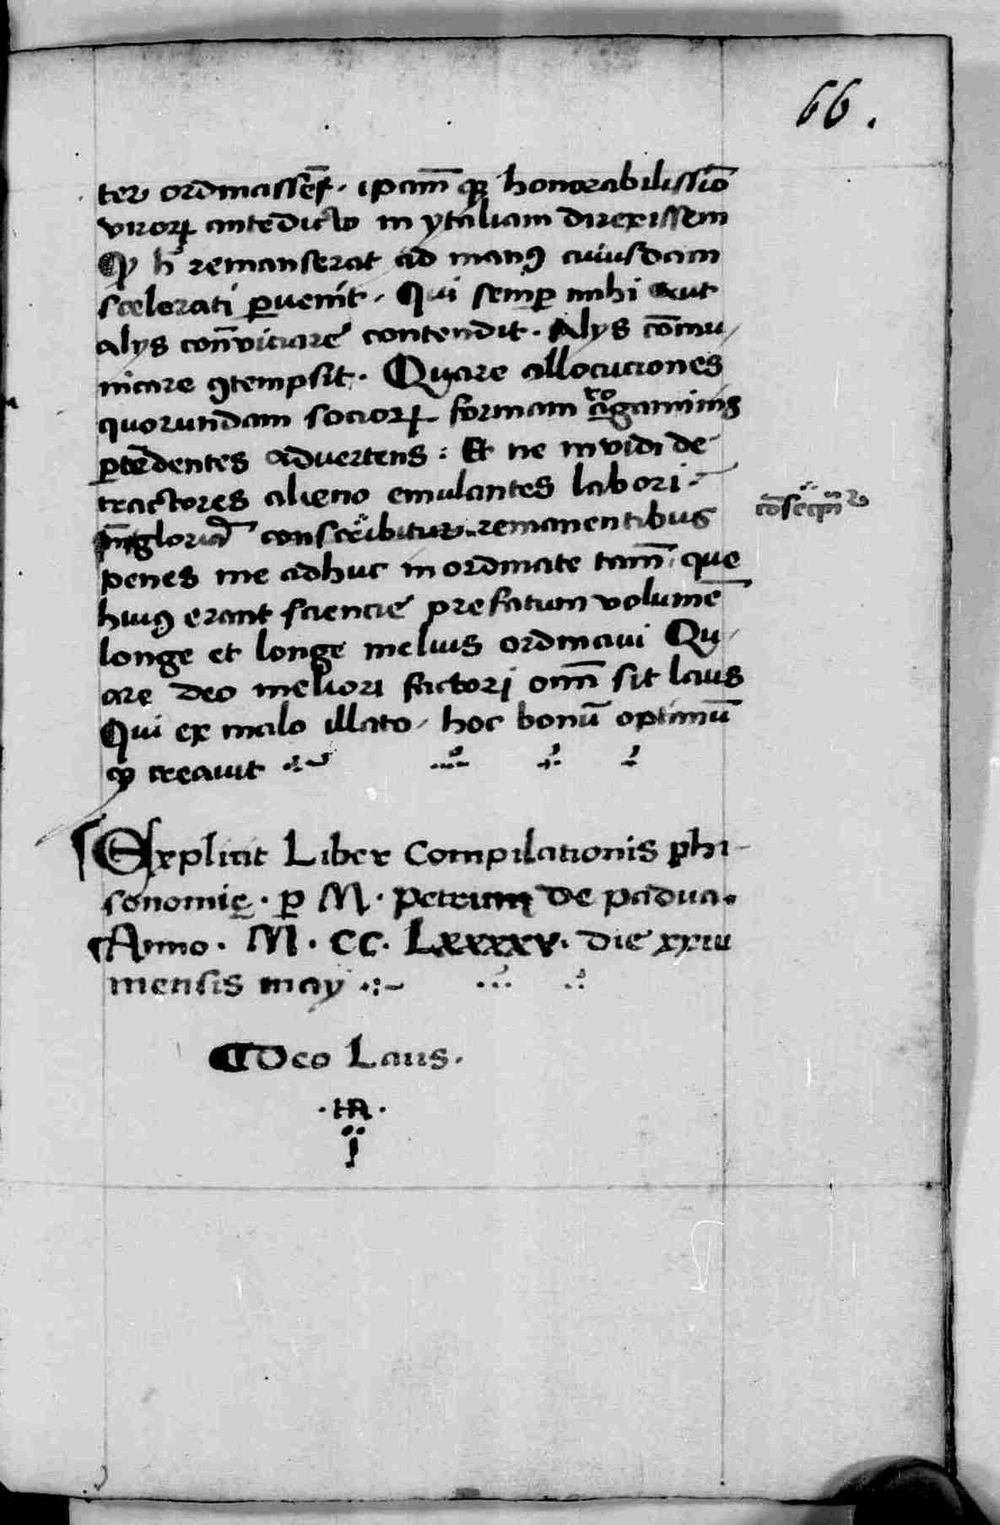 66.
ter ordinassēt. ipam̄ qꝫ honorabilissīo
virorꝝ antedicto in ytaliam direxissem
Qꝫ h remanserat ad manꝰ cuiusdam
scelorati ꝑuenit. Qui semꝑ mihi aut
alys con̄viciare contendit. Alys com̄u/
nicare ꝯtempsit. Quare allocuciones
quorundam sociorꝝ formam gaminis
ꝑtēdentes advertens: Et ne invidi de-
tractores alieno emulantes labori
gloria conscribitur remanentibus
cōseqm̄r
penes me adhuc inordinate tam̄ que
huiꝰ erant sciencie prefatum volumē
longe et longe melius ordinavi Qu/
are deo meliori factori om̄ sit laus
Qui ex malo illato hoc bonū optimū
qꝫ creauit
Explicit Liber Compilationis phi-
sonomię. ꝑ M. Petrum de padua.
Anno. M. CC. Lxxxxv. die xxiii
mensis may
Deo Laus.